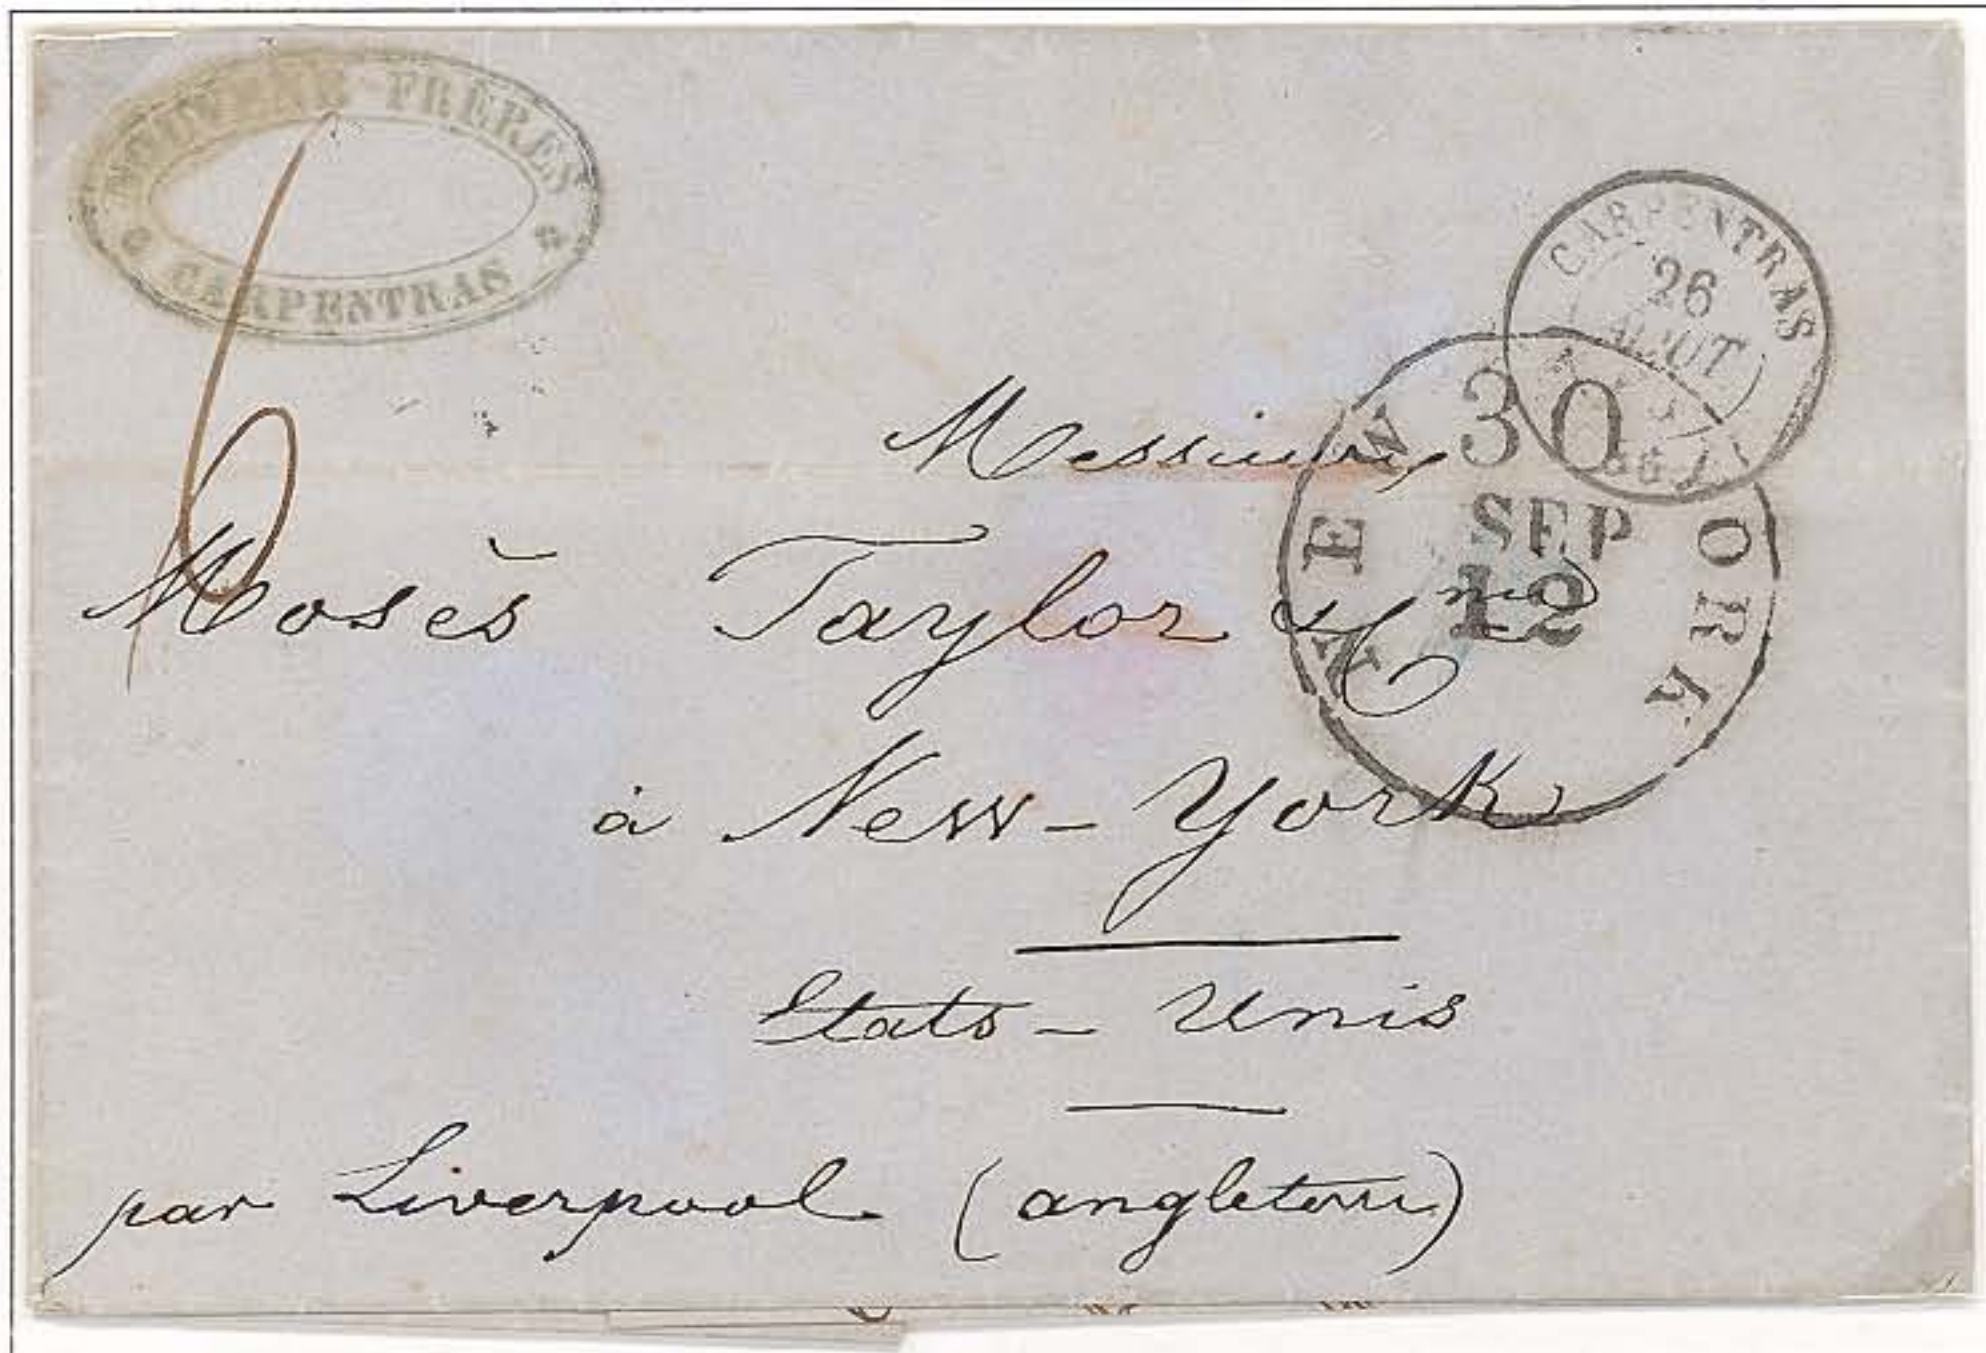 FRERES
CARPENTRAS
CARPENTRAS
26
AOUT
6
NEW YORK
30
SEP
12
Messieurs
Mosès Taylor & Cnie
à New-York
Etats-Unis
par Liverpool (angleterre)